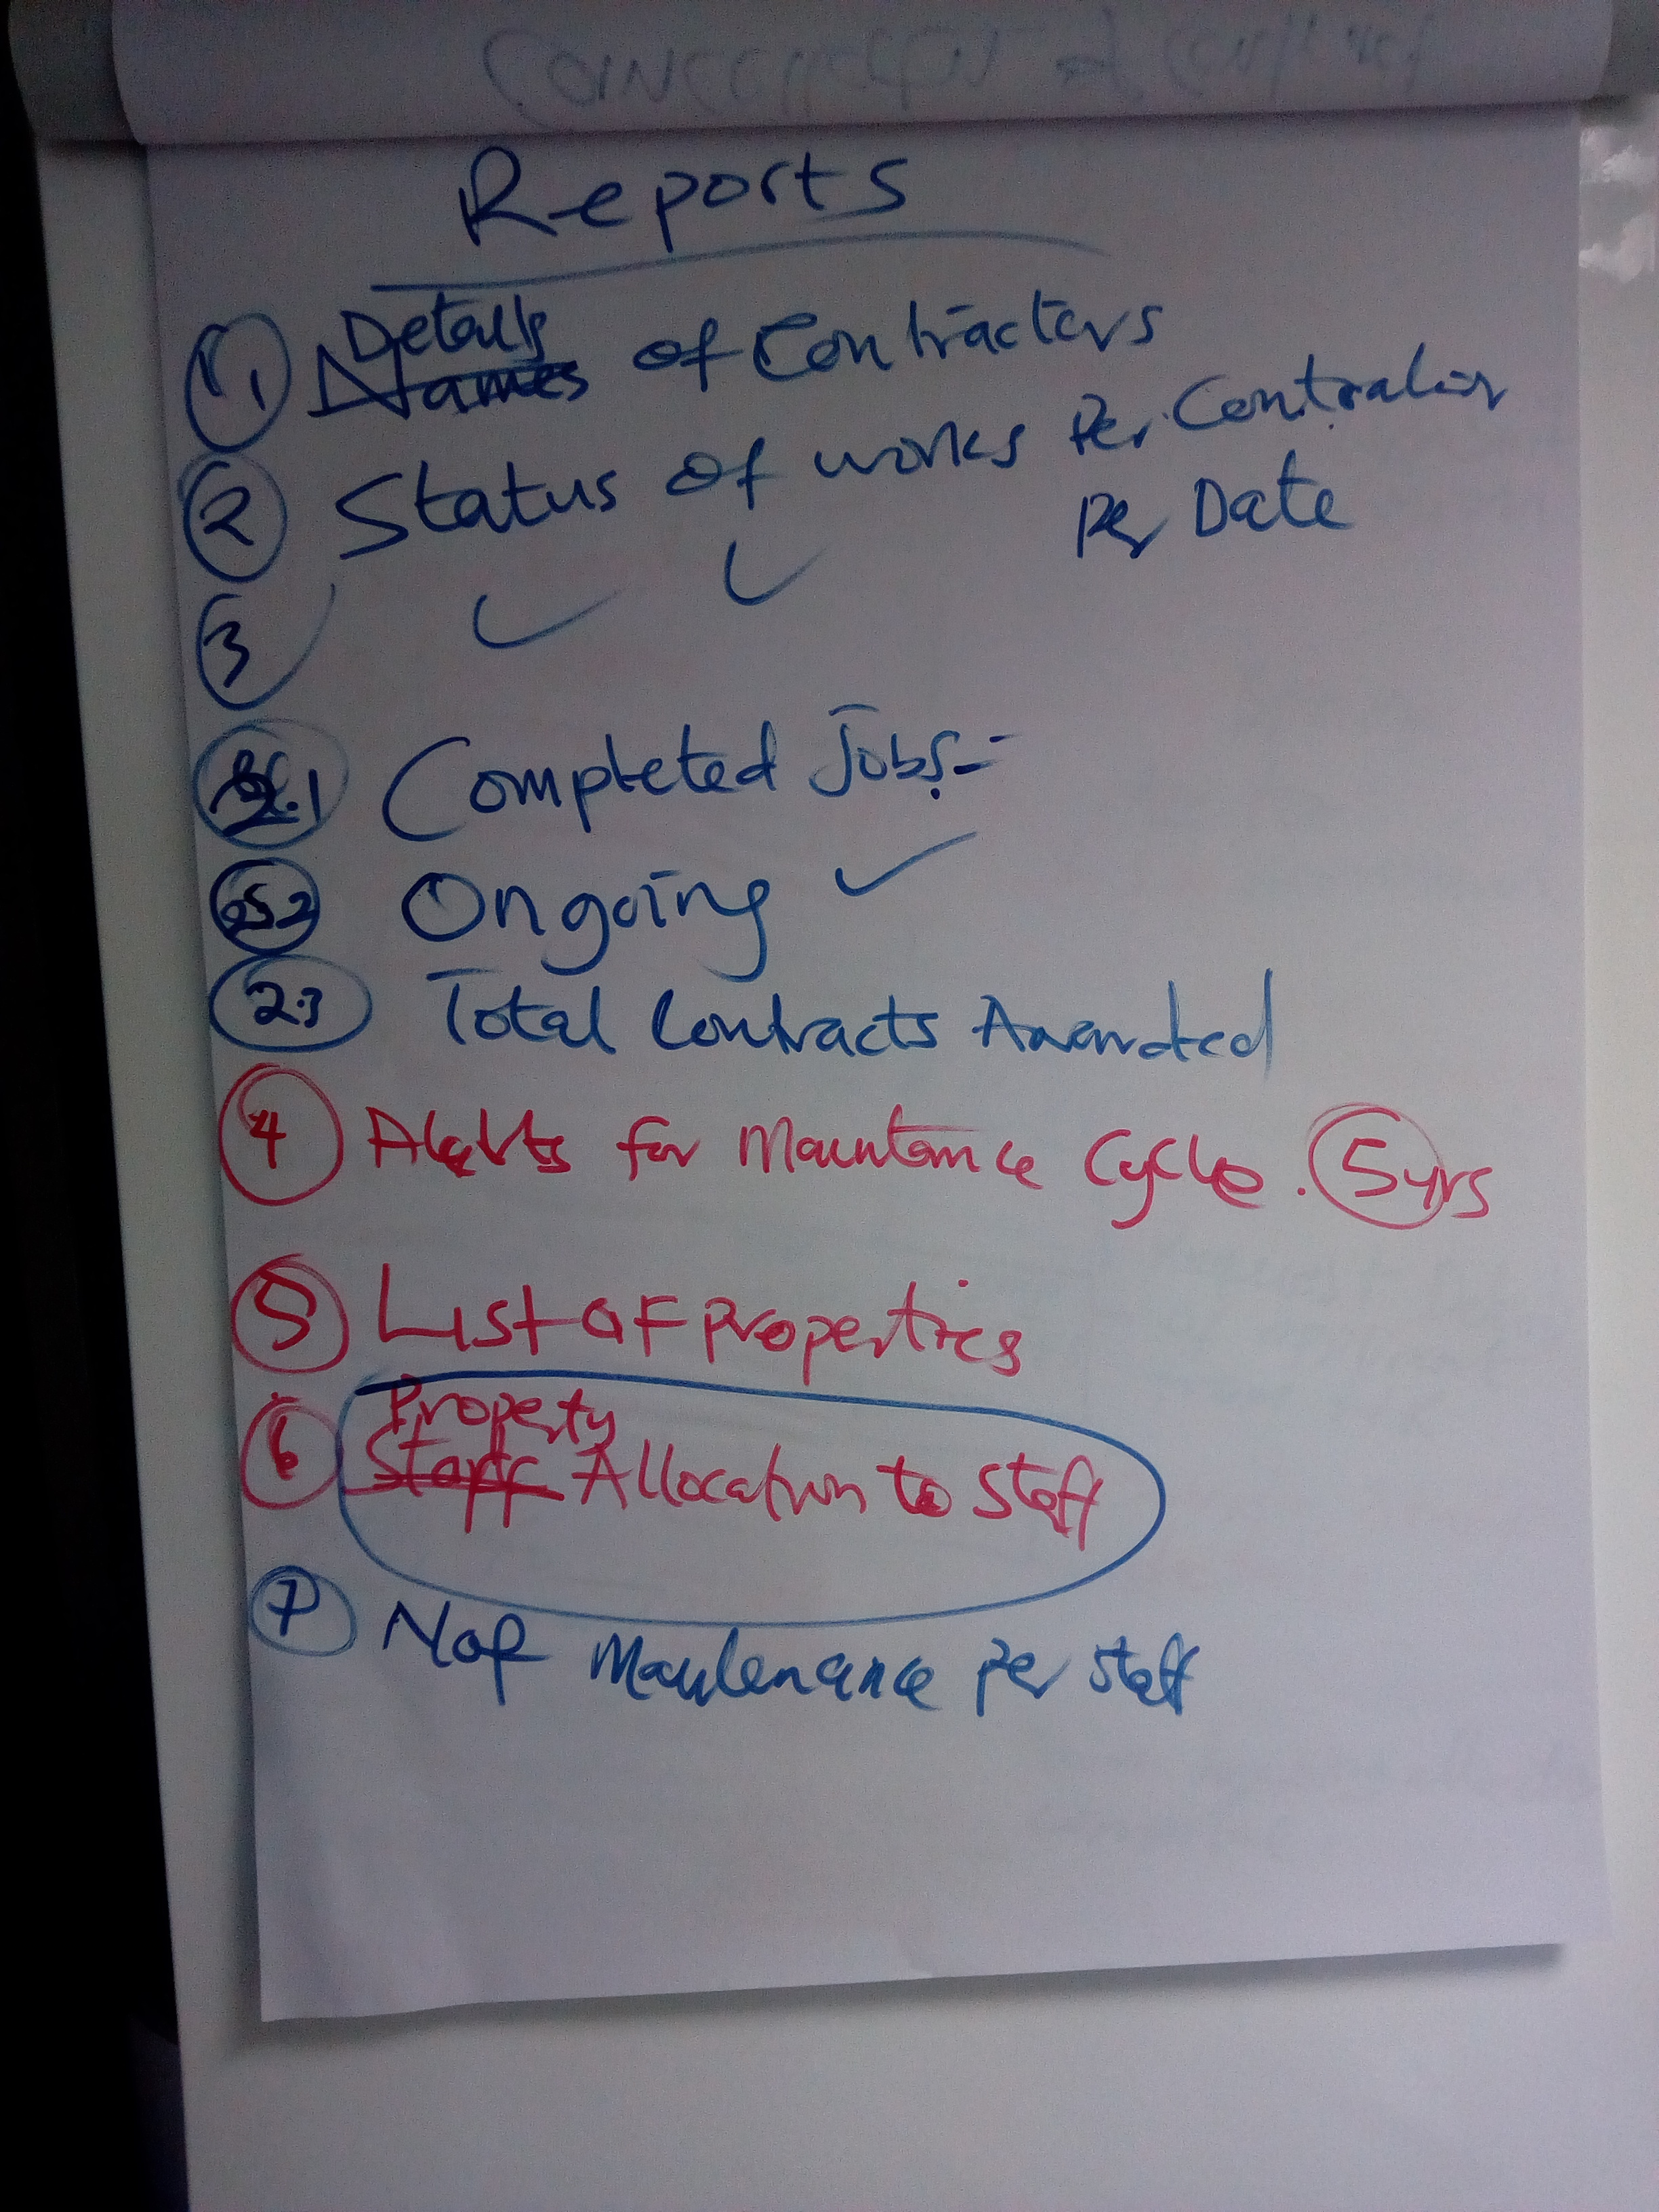 Reports
1 Details
Names of Contractors
2 Status of works Per Contractor
Per Date
3 ✓ ✓
2.1 Completed Jobs -
2.2 Ongoing ✓
2.3 Total Contracts Awarded
4 Alerts for Maintenance Cycle. 5yrs
5 List of properties
6 Property
Staff Allocation to Staff
7 No of Maintenance per staff